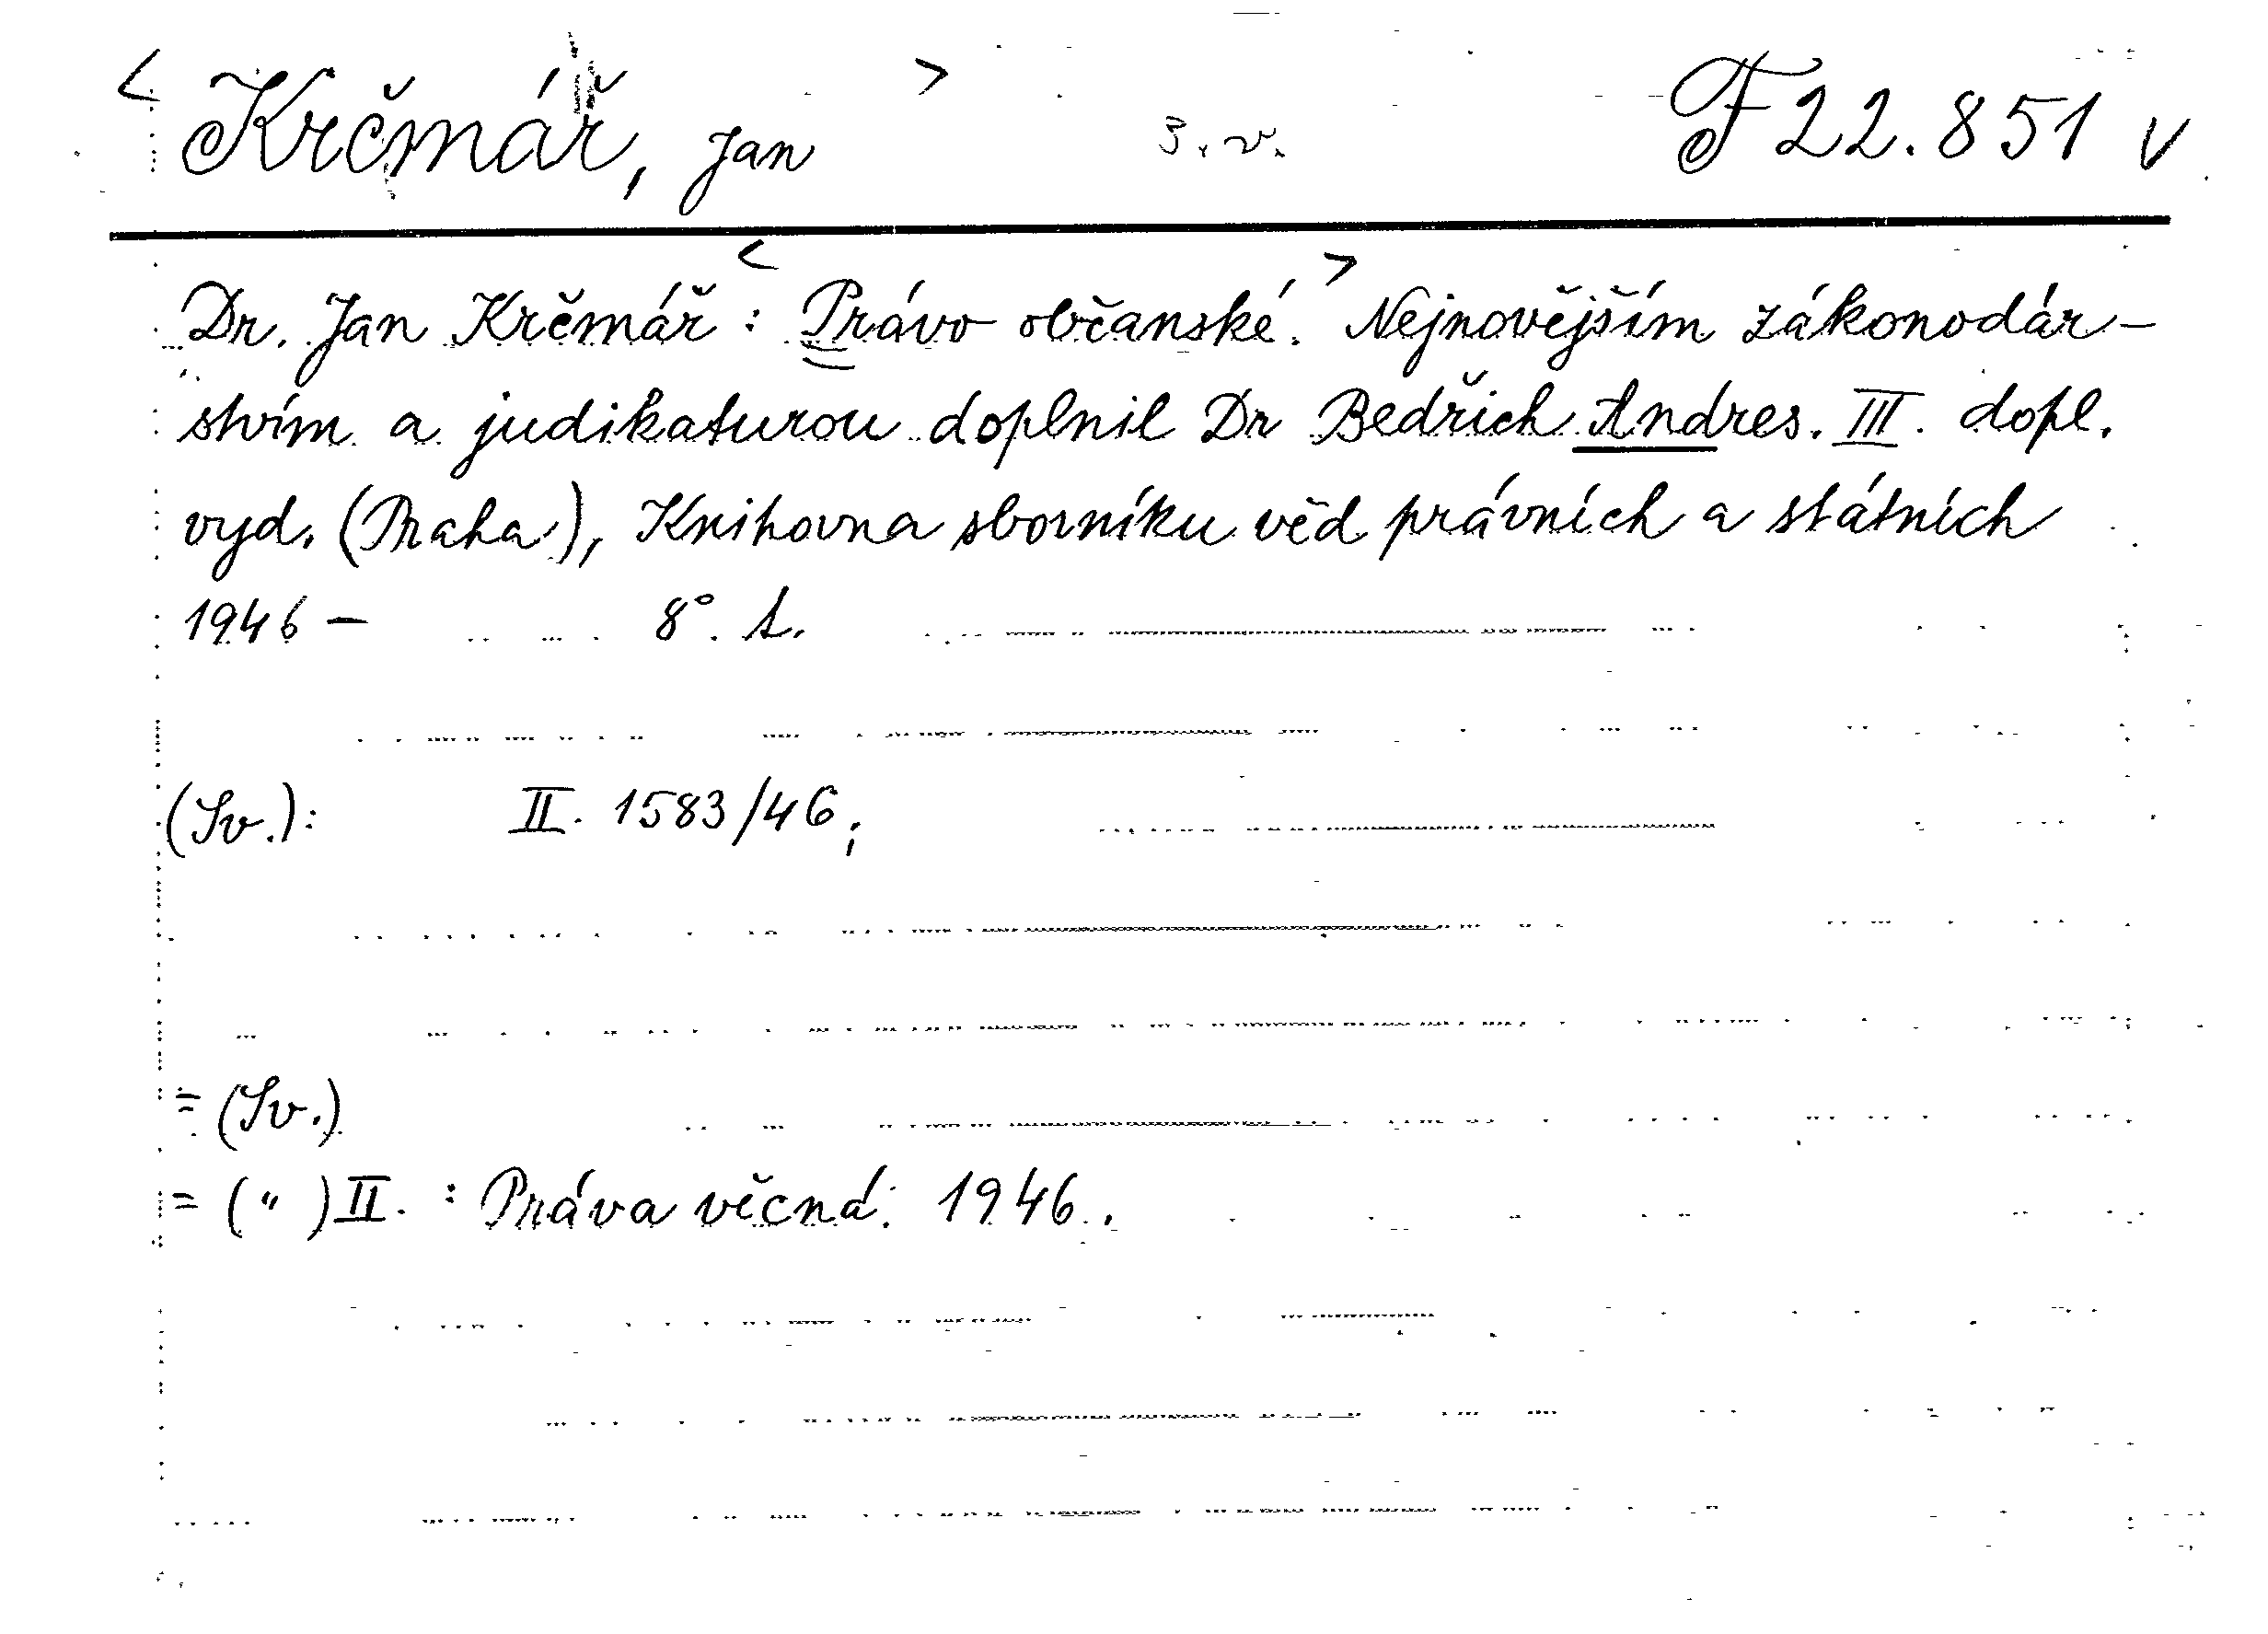 < Krčmář, Jan > 3. v. F 22.851 v
Dr. Jan Krčmář : <Právo občanské.> Nejnovějším zákonodár-
stvím a judikaturou doplnil Dr Bedřich Andres. III. dopl.
vyd. (Praha), Knihovna sborníku věd právních a státních
1946 — 8°.
(Sv.): II. 1583/46;
= (Sv.)
= ( " ) II. : Práva věcná. 1946.